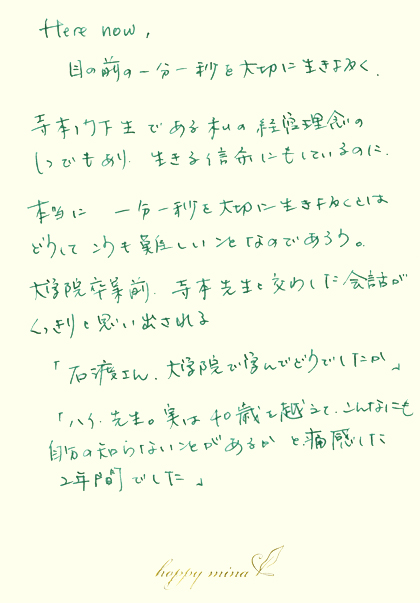 Here now,
目の前の一分一秒を大切に生きぬく.
寺本門下生である私の経営理念の
1つでもあり. 生きる信命にもしているのに.
本当に 一分一秒を大切に生きぬくとは
どうしてこうも難しいことなのであろう。
大学院卒業前. 寺本先生と交わした会話が
くっきりと思い出される
「石渡さん. 大学院で学んでどうでしたか」
「ハイ. 先生。実は40歳を越えて. こんなにも
自分の知らないことがあるかと痛感した
2年間でした」
happy mina